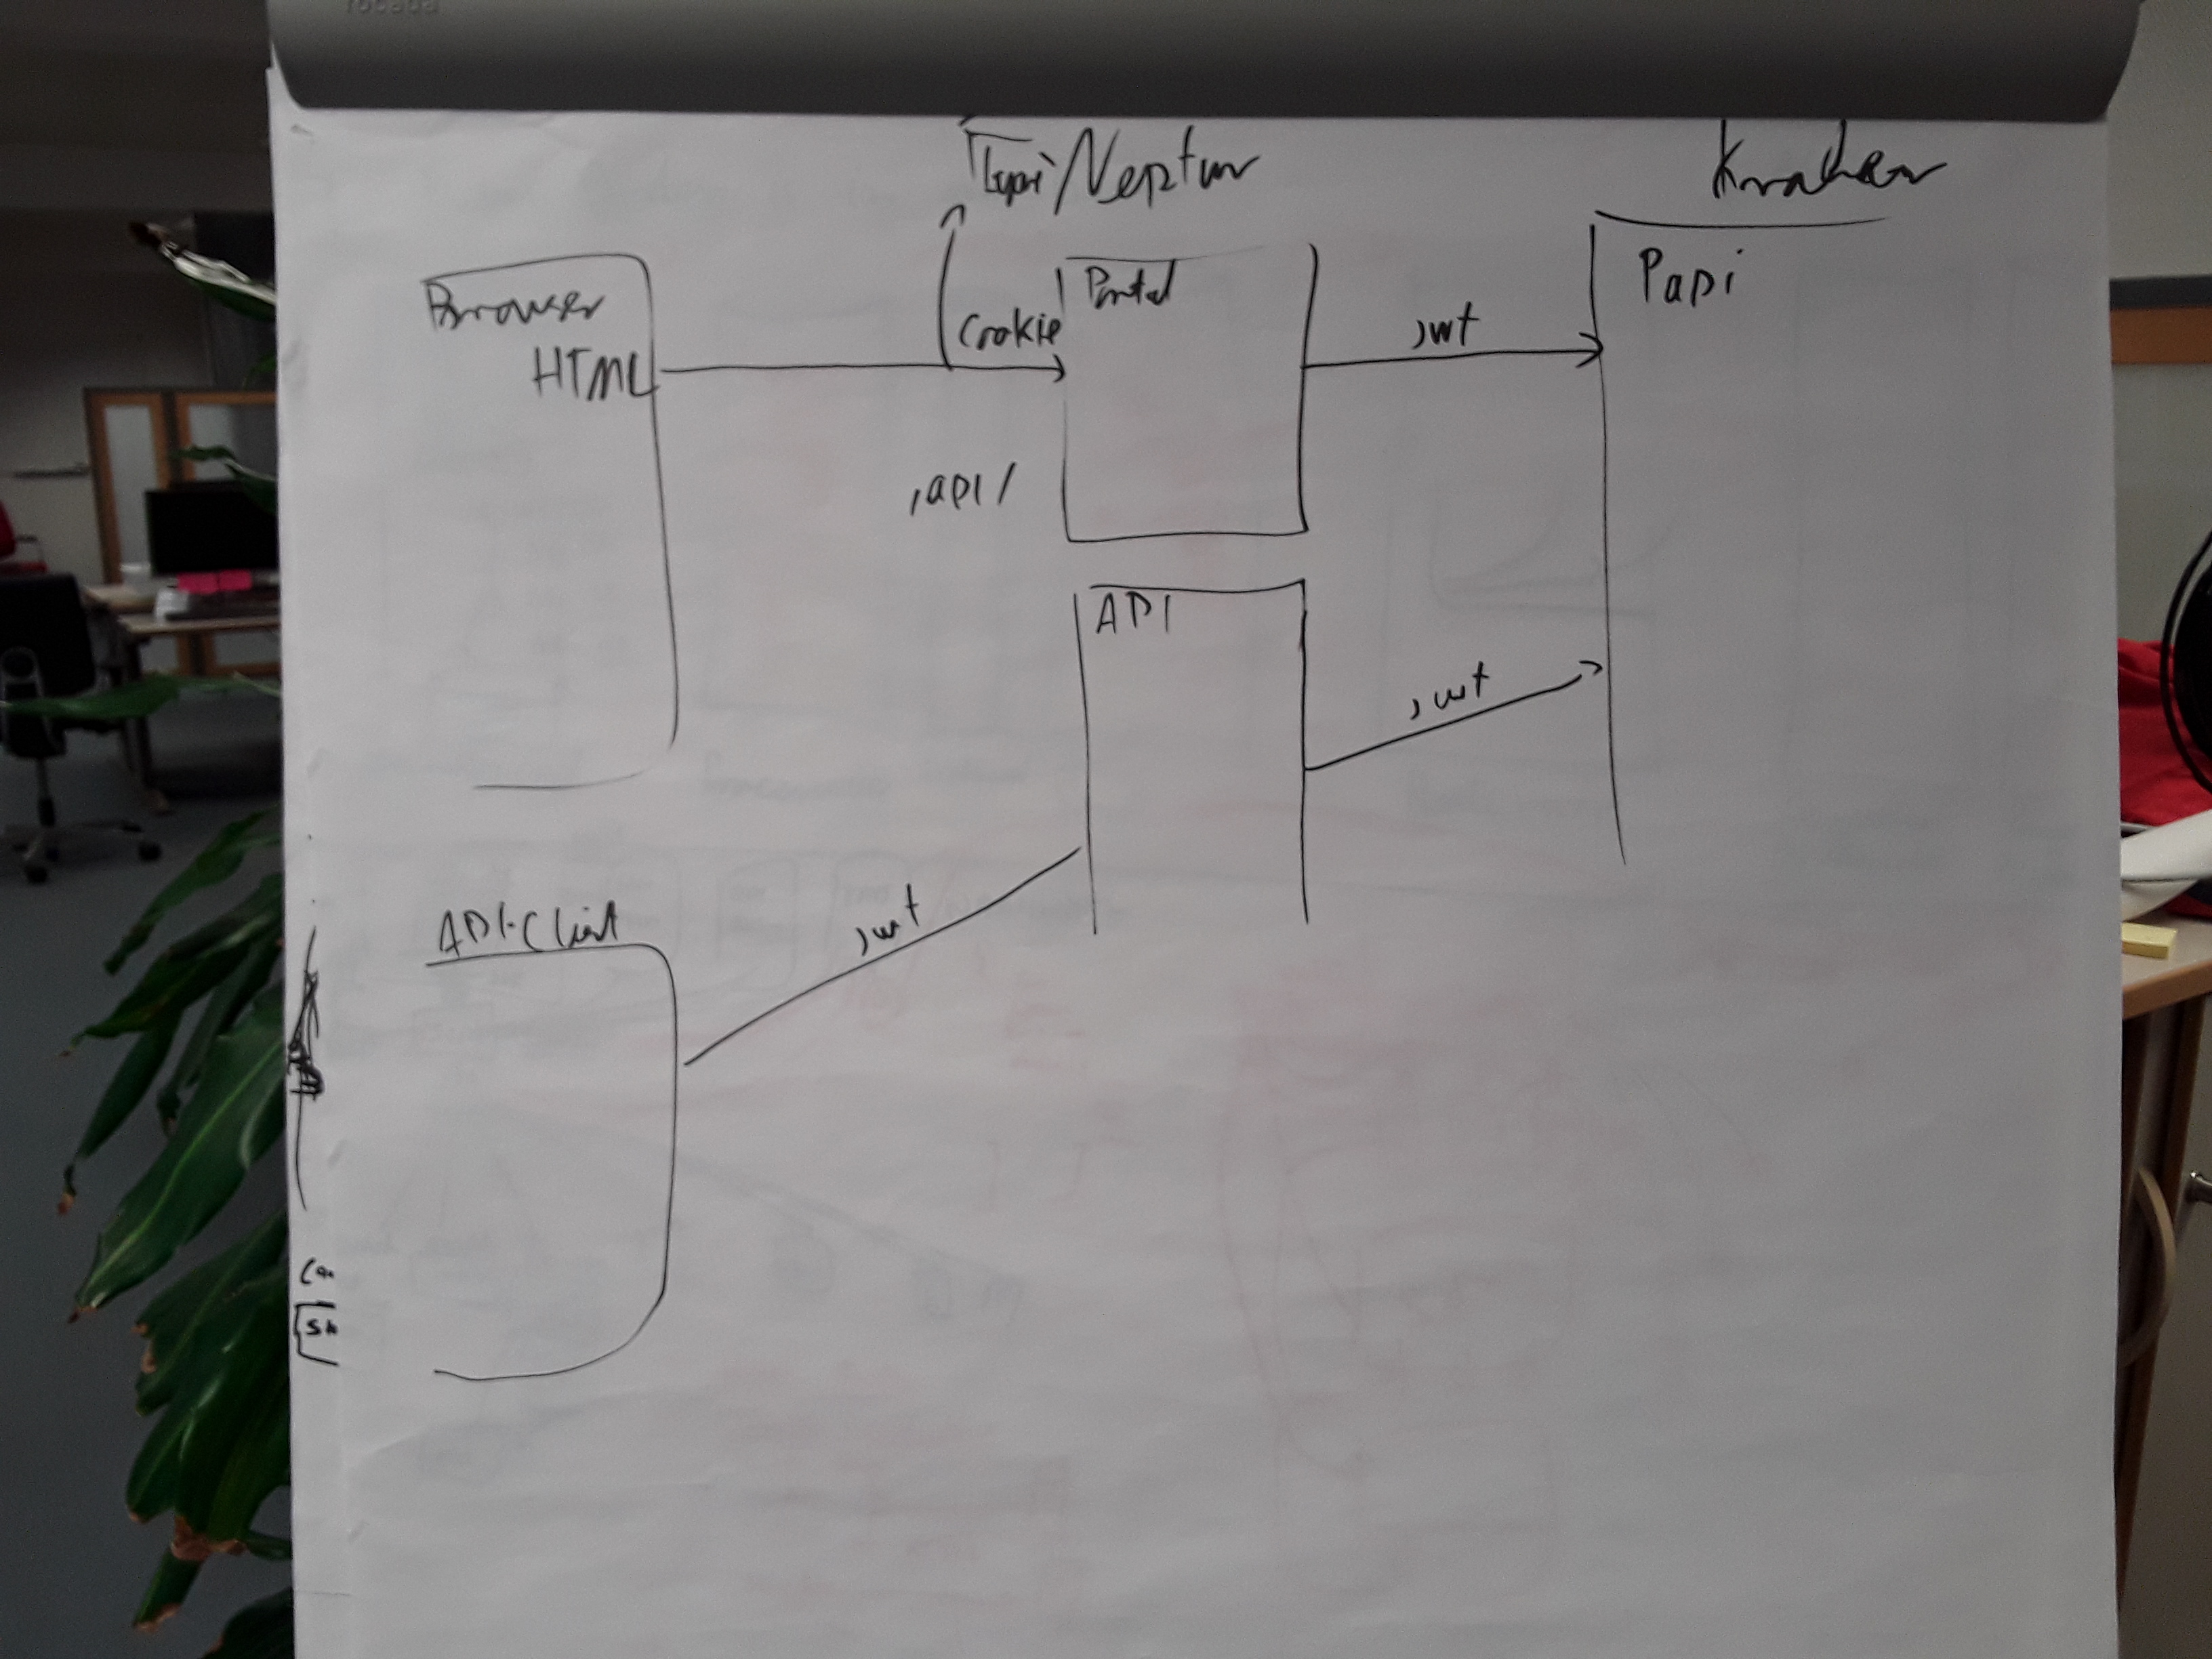 /Neptun
Kraken
Browser
HTML
Cookie
Portal
jwt
Papi
/api/
API
jwt
API-Client
jwt